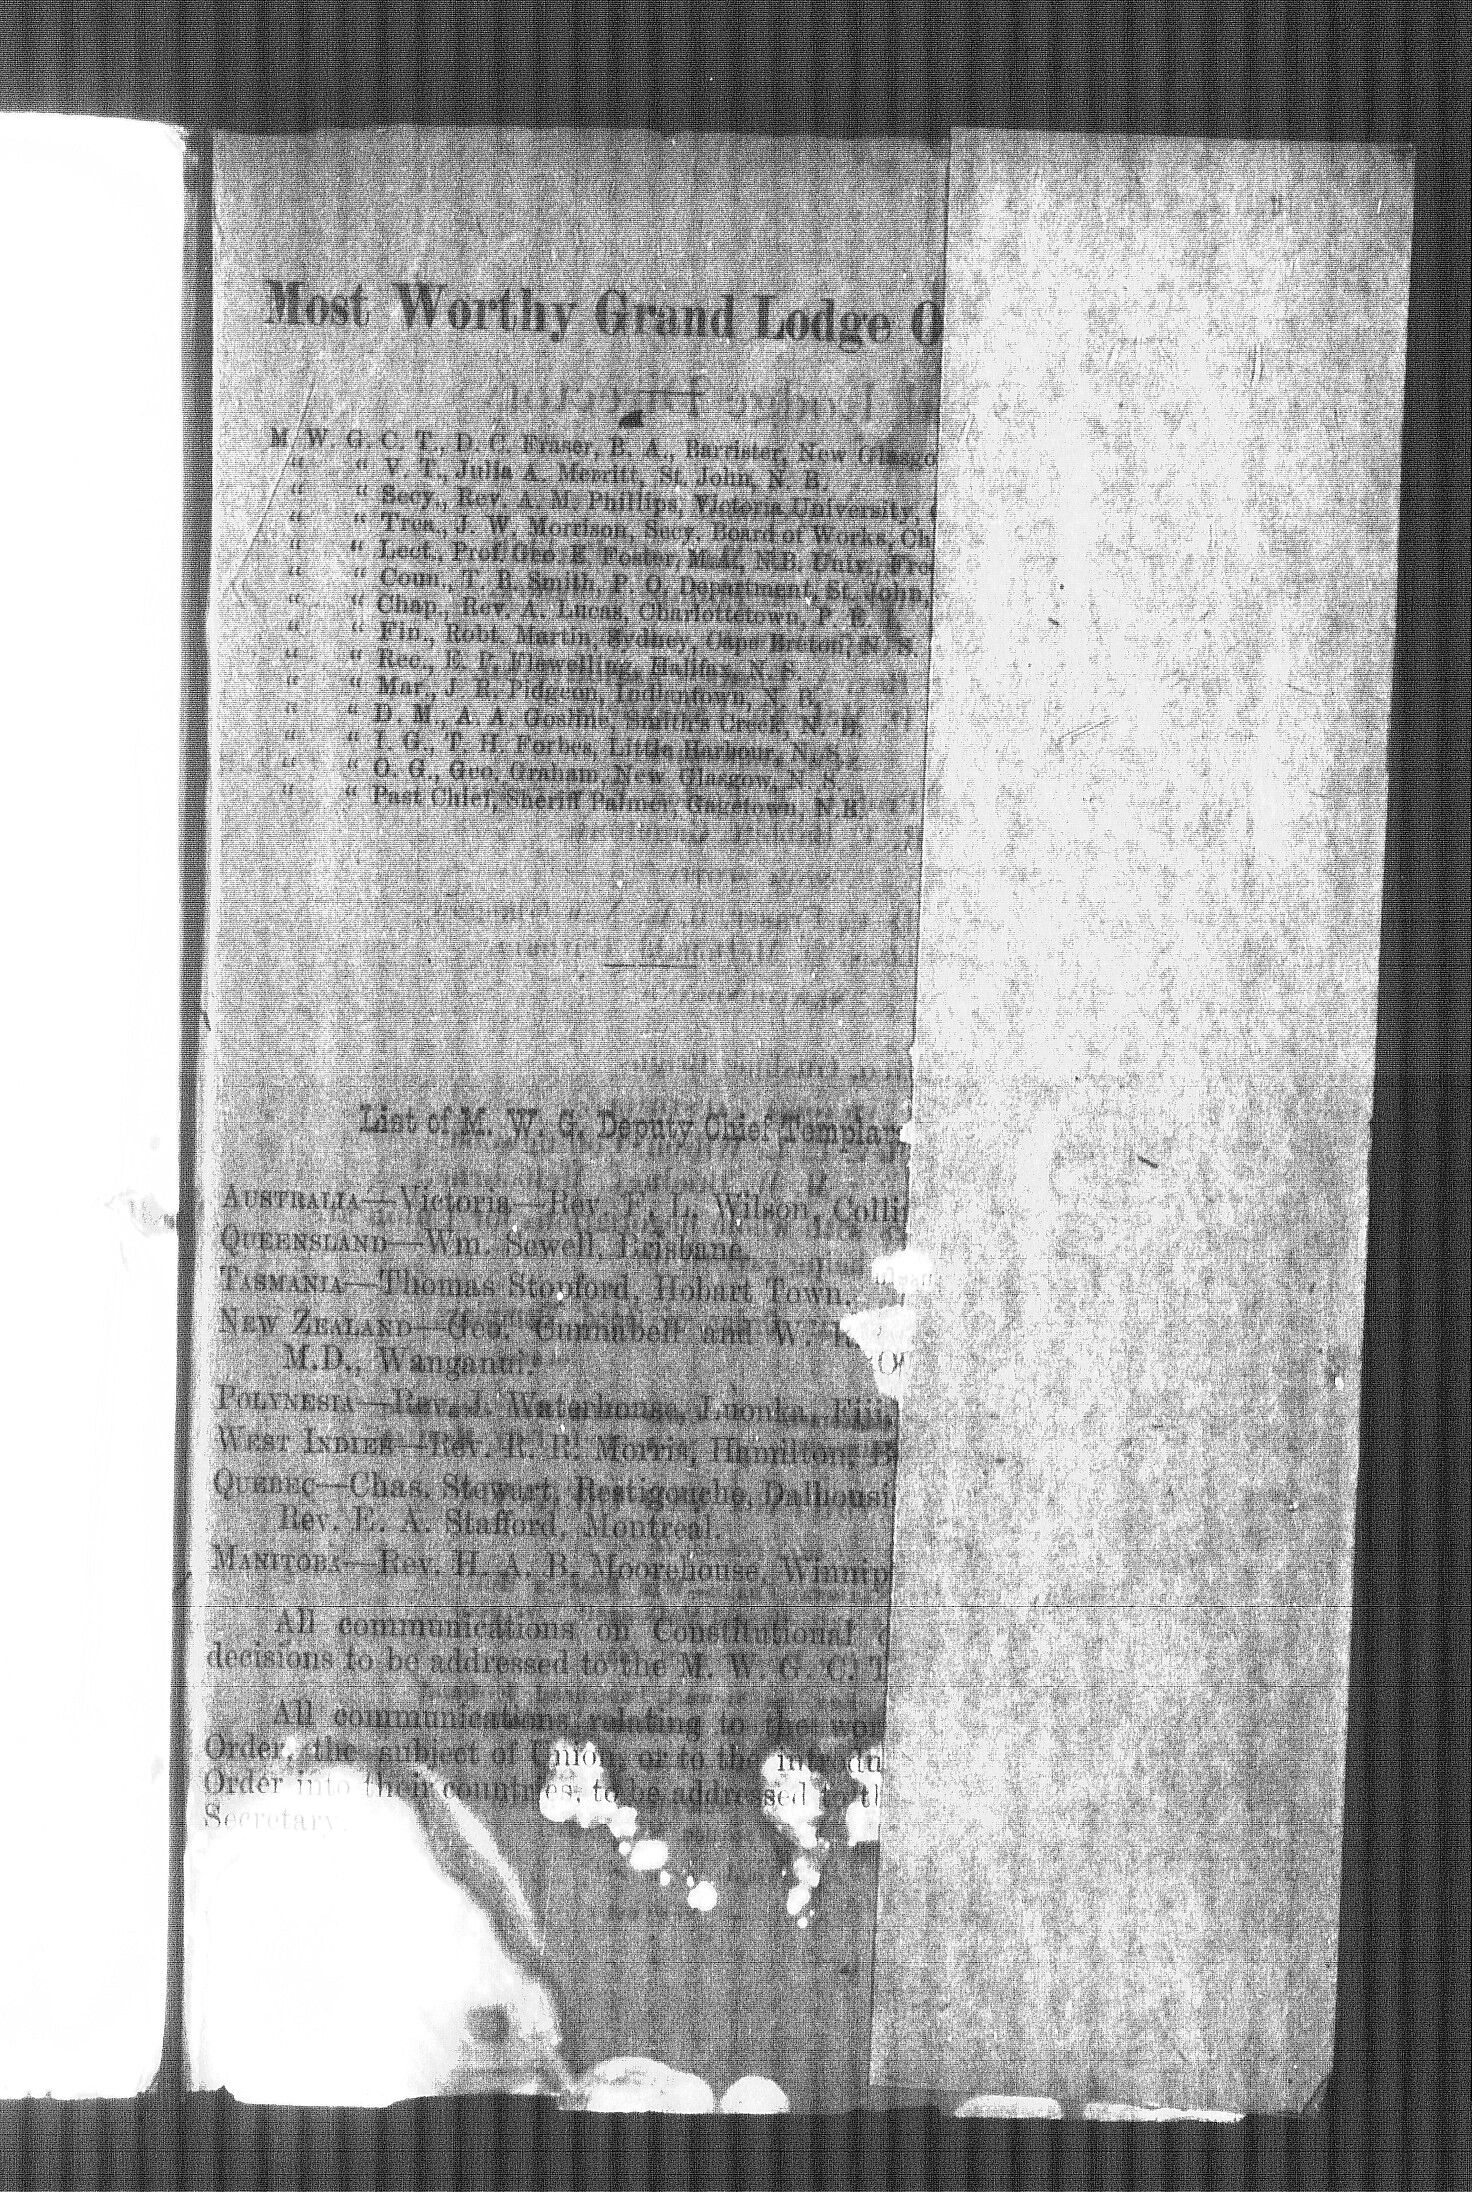 Most Worthy Grand Lodge O
M. W. G. C. T., D. C. Fraser, B. A., Barrister, New Glasgo
“ “ V. T., Julia A. Merritt, St. John, N. B.
“ “ Secy., Rev. A. M. Phillips, Victoria University,
“ “ Trea., J. W. Morrison, Secy. Board of Works, Ch
“ “ Lect., Prof. Geo. E. Foster, M.A., N.B. Univ., Fre
“ “ Coun., T. B. Smith, P. O. Department, St. John,
“ “ Chap., Rev. A. Lucas, Charlottetown, P. E. I.
“ “ Fin., Robt. Martin, Sydney, Cape Breton, N. S.
“ “ Rec., E. P. Flewelling, Halifax, N. S.
“ “ Mar., J. R. Pidgeon, Indiantown, N. B.
“ “ D. M., A. A. Gosline, Smith's Creek, N. B.
“ “ I. G., T. H. Forbes, Little Harbour, N. S.
“ “ O. G., Geo. Graham, New Glasgow, N. S.
“ “ Past Chief, Sheriff Palmer, Gagetown, N.B.
List of M. W. G. Deputy Chief Templar
AUSTRALIA—Victoria—Rev. F. L. Wilson, Colli
QUEENSLAND—Wm. Sowell, Brisbane.
TASMANIA—Thomas Stopford, Hobart Town.
NEW ZEALAND—Geo. Cunnabell and W.
M.D., Wanganui.
POLYNESIA—Rev. J. Waterhouse, Fiji,
WEST INDIES—Rev. R. R. Morris, Hamilton, B
QUEBEC—Chas. Stewart, Restigouche, Dalhousi
Rev. E. A. Stafford, Montreal.
MANITOBA—Rev. H. A. B. Moorehouse, Winnip
All communications on Constitutional
decisions to be addressed to the M. W. G. C. T
All communications relating to the wor
Order, the subject of Union, or to the introdu
Order into their countries, to be addressed to th
Secretary.